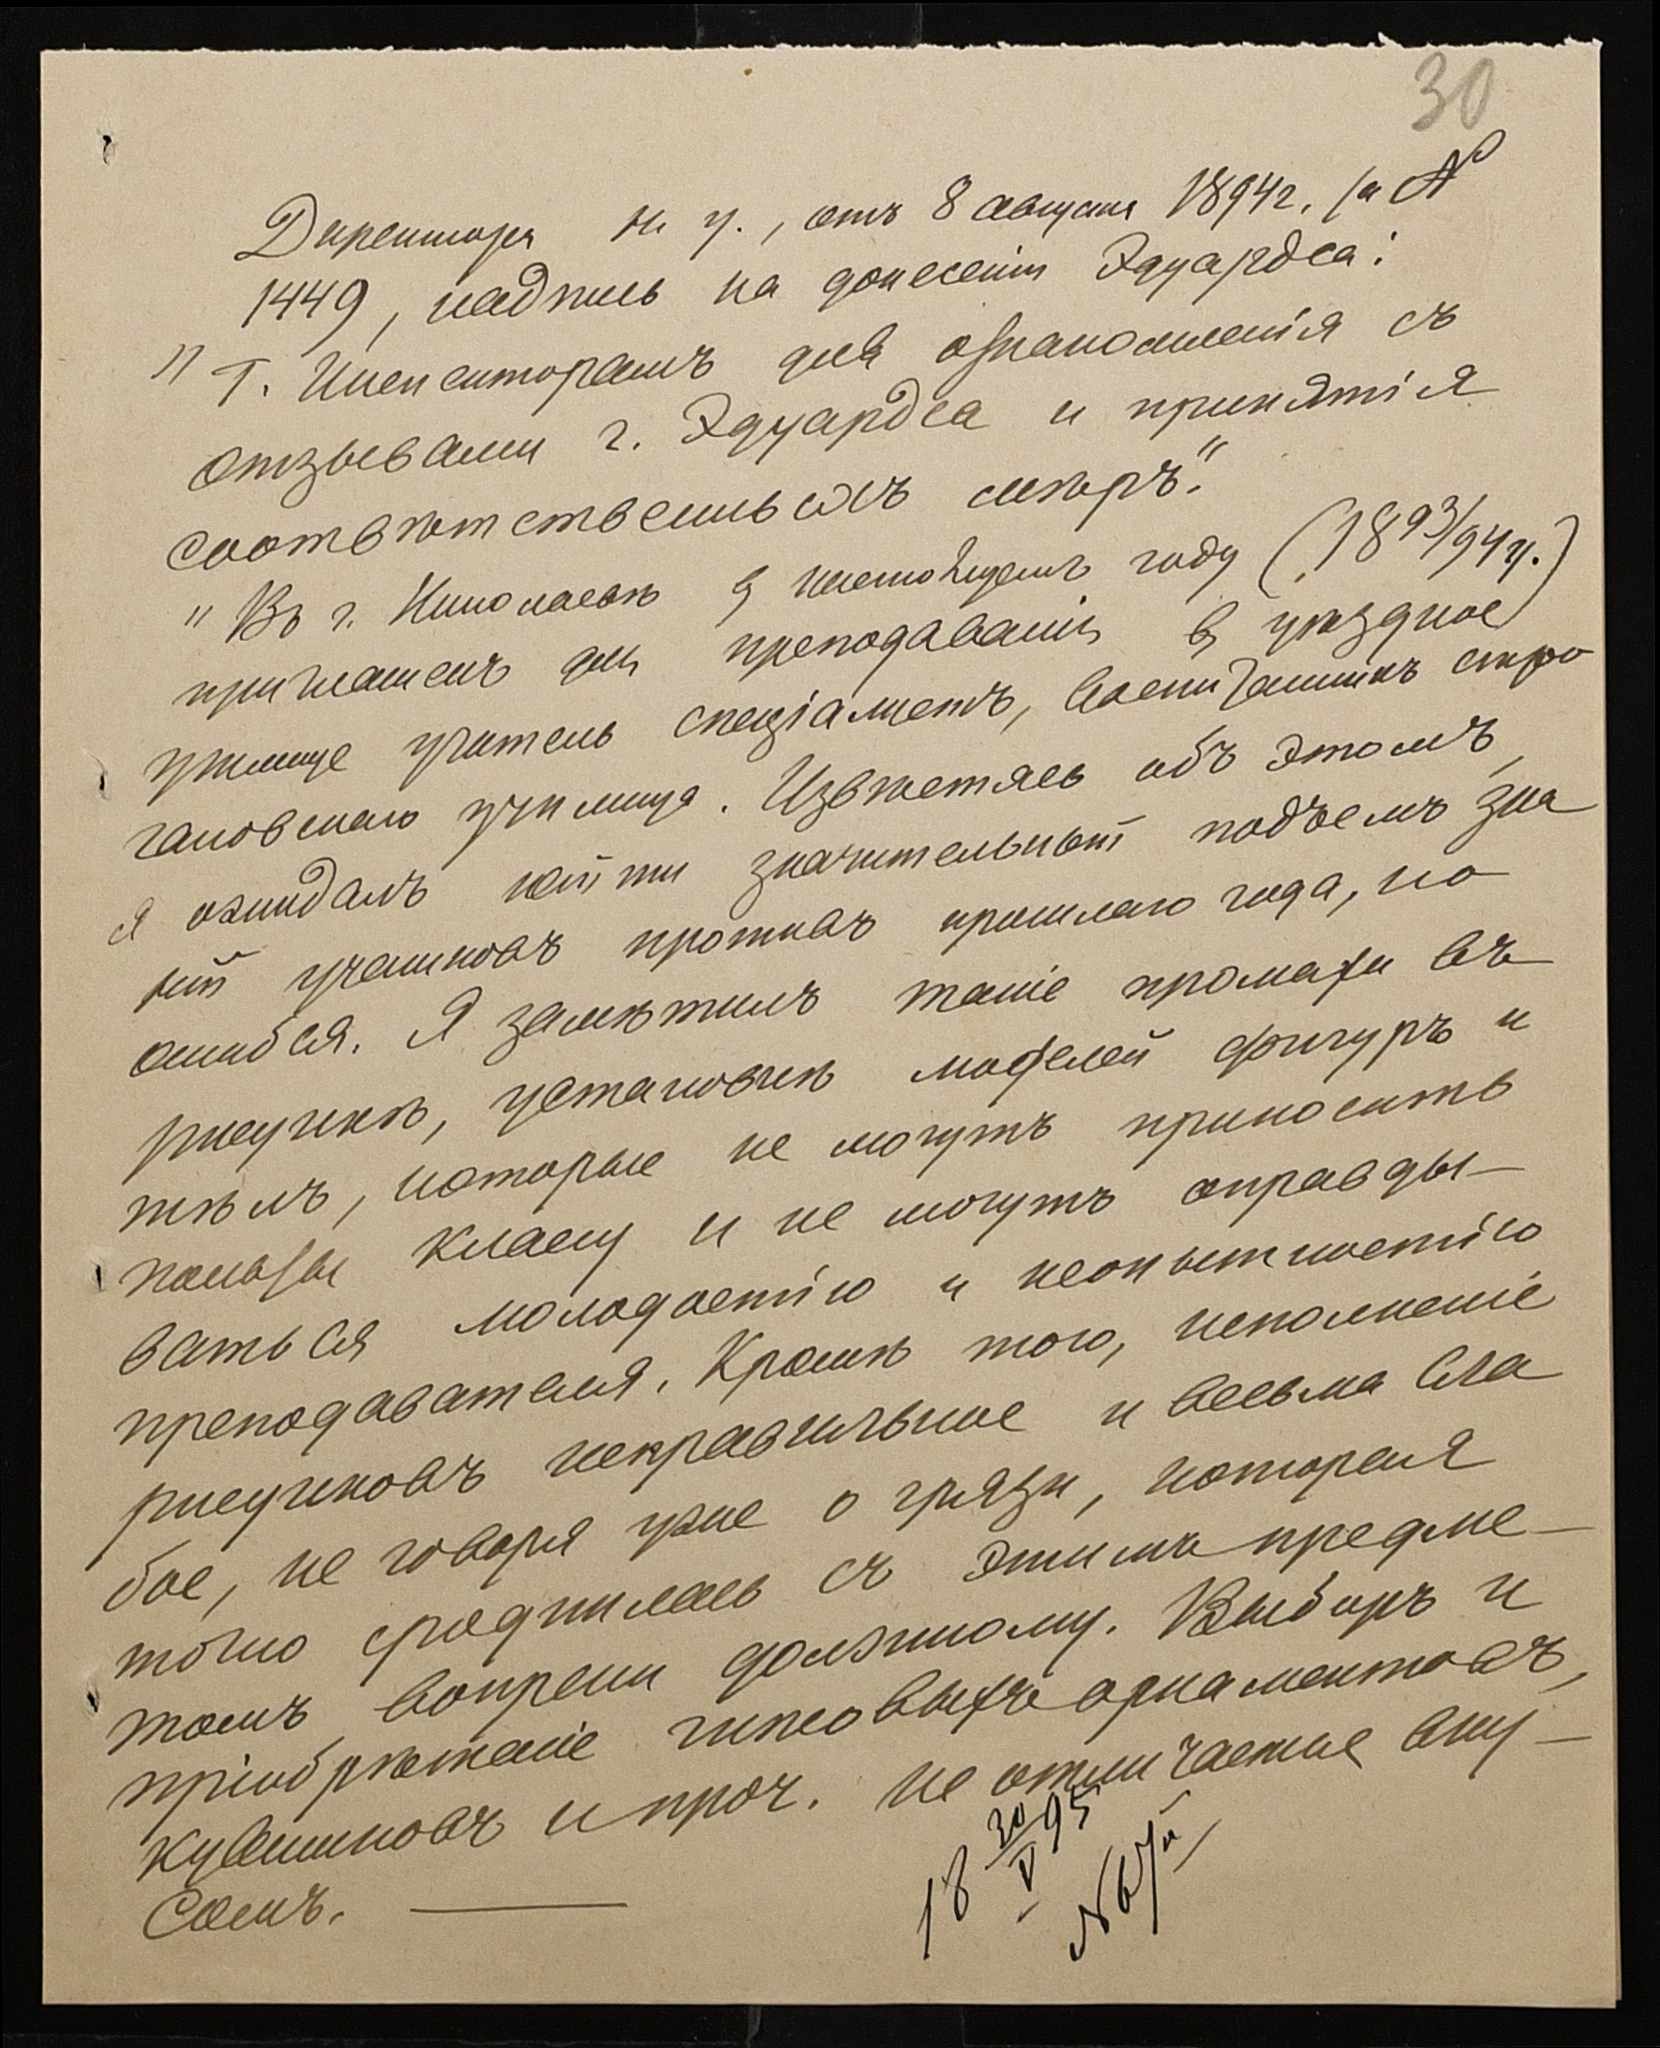 30
Директора н. у., отъ 8 августа 1894г. за №
1449, надпись на донесеніи Эдуардса:
"Г. Инспекторамъ для ознакомленія съ
отзывами г. Эдуардса и принятія
соотвѣтственныхъ мѣръ."
"Въ г. Николаевѣ въ настоящемъ году (1893/94 г.)
приглашенъ для преподаванія въ уѣздное
училище учитель спеціалистъ, воспитанникъ стро
гановскаго училища. Извѣстясь объ этомъ,
я ожидалъ найти значительный подъемъ зна
ній учениковъ противъ прошлаго года, но
ошибся. Я замѣтилъ такіе промахи въ
рисункѣ, установкѣ моделей фигуръ и
тѣлъ, которые не могутъ приносить
пользы классу и не могутъ оправды-
ваться молодостію и неопытностію
преподавателя. Кромѣ того, исполненіе
рисунковъ неправильное и весьма сла
бое, не говоря уже о грязи, которая
точно сроднилась съ этимъ предме-
томъ вопреки должному. Выборъ и
пріобрѣтеніе гипсовыхъ орнаментовъ,
кувшиновъ и проч. не отличается вку-
сомъ. —
18 30/V 95
№